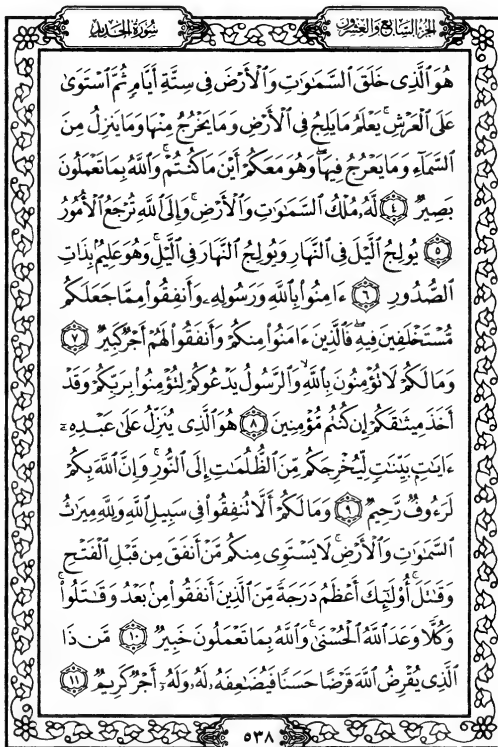 سُورَةُ الحَدِيدِ
الجُزْءُ السَّابِعُ وَالعِشْرُونَ
هُوَ ٱلَّذِى خَلَقَ ٱلسَّمَٰوَٰتِ وَٱلْأَرْضَ فِى سِتَّةِ أَيَّامٍ ثُمَّ ٱسْتَوَىٰ
عَلَى ٱلْعَرْشِ ۚ يَعْلَمُ مَا يَلِجُ فِى ٱلْأَرْضِ وَمَا يَخْرُجُ مِنْهَا وَمَا يَنزِلُ مِنَ
ٱلسَّمَآءِ وَمَا يَعْرُجُ فِيهَا ۖ وَهُوَ مَعَكُمْ أَيْنَ مَا كُنتُمْ ۚ وَٱللَّهُ بِمَا تَعْمَلُونَ
بَصِيرٌ ٤ لَّهُۥ مُلْكُ ٱلسَّمَٰوَٰتِ وَٱلْأَرْضِ ۚ وَإِلَى ٱللَّهِ تُرْجَعُ ٱلْأُمُورُ
٥ يُولِجُ ٱلَّيْلَ فِى ٱلنَّهَارِ وَيُولِجُ ٱلنَّهَارَ فِى ٱلَّيْلِ ۚ وَهُوَ عَلِيمٌۢ بِذَاتِ
ٱلصُّدُورِ ٦ ءَامِنُوا۟ بِٱللَّهِ وَرَسُولِهِۦ وَأَنفِقُوا۟ مِمَّا جَعَلَكُم
مُّسْتَخْلَفِينَ فِيهِ ۖ فَٱلَّذِينَ ءَامَنُوا۟ مِنكُمْ وَأَنفَقُوا۟ لَهُمْ أَجْرٌ كَبِيرٌ ٧
وَمَا لَكُمْ لَا تُؤْمِنُونَ بِٱللَّهِ ۙ وَٱلرَّسُولُ يَدْعُوكُمْ لِتُؤْمِنُوا۟ بِرَبِّكُمْ وَقَدْ
أَخَذَ مِيثَٰقَكُمْ إِن كُنتُم مُّؤْمِنِينَ ٨ هُوَ ٱلَّذِى يُنَزِّلُ عَلَىٰ عَبْدِهِۦٓ
ءَايَٰتٍۭ بَيِّنَٰتٍ لِّيُخْرِجَكُم مِّنَ ٱلظُّلُمَٰتِ إِلَى ٱلنُّورِ ۚ وَإِنَّ ٱللَّهَ بِكُمْ
لَرَءُوفٌ رَّحِيمٌ ٩ وَمَا لَكُمْ أَلَّا تُنفِقُوا۟ فِى سَبِيلِ ٱللَّهِ وَلِلَّهِ مِيرَٰثُ
ٱلسَّمَٰوَٰتِ وَٱلْأَرْضِ ۚ لَا يَسْتَوِى مِنكُم مَّنْ أَنفَقَ مِن قَبْلِ ٱلْفَتْحِ
وَقَٰتَلَ ۚ أُو۟لَٰٓئِكَ أَعْظَمُ دَرَجَةً مِّنَ ٱلَّذِينَ أَنفَقُوا۟ مِنۢ بَعْدُ وَقَٰتَلُوا۟ ۚ
وَكُلًّا وَعَدَ ٱللَّهُ ٱلْحُسْنَىٰ ۚ وَٱللَّهُ بِمَا تَعْمَلُونَ خَبِيرٌ ١٠ مَّن ذَا
ٱلَّذِى يُقْرِضُ ٱللَّهَ قَرْضًا حَسَنًا فَيُضَٰعِفَهُۥ لَهُۥ وَلَهُۥٓ أَجْرٌ كَرِيمٌ ١١
٥٣٨